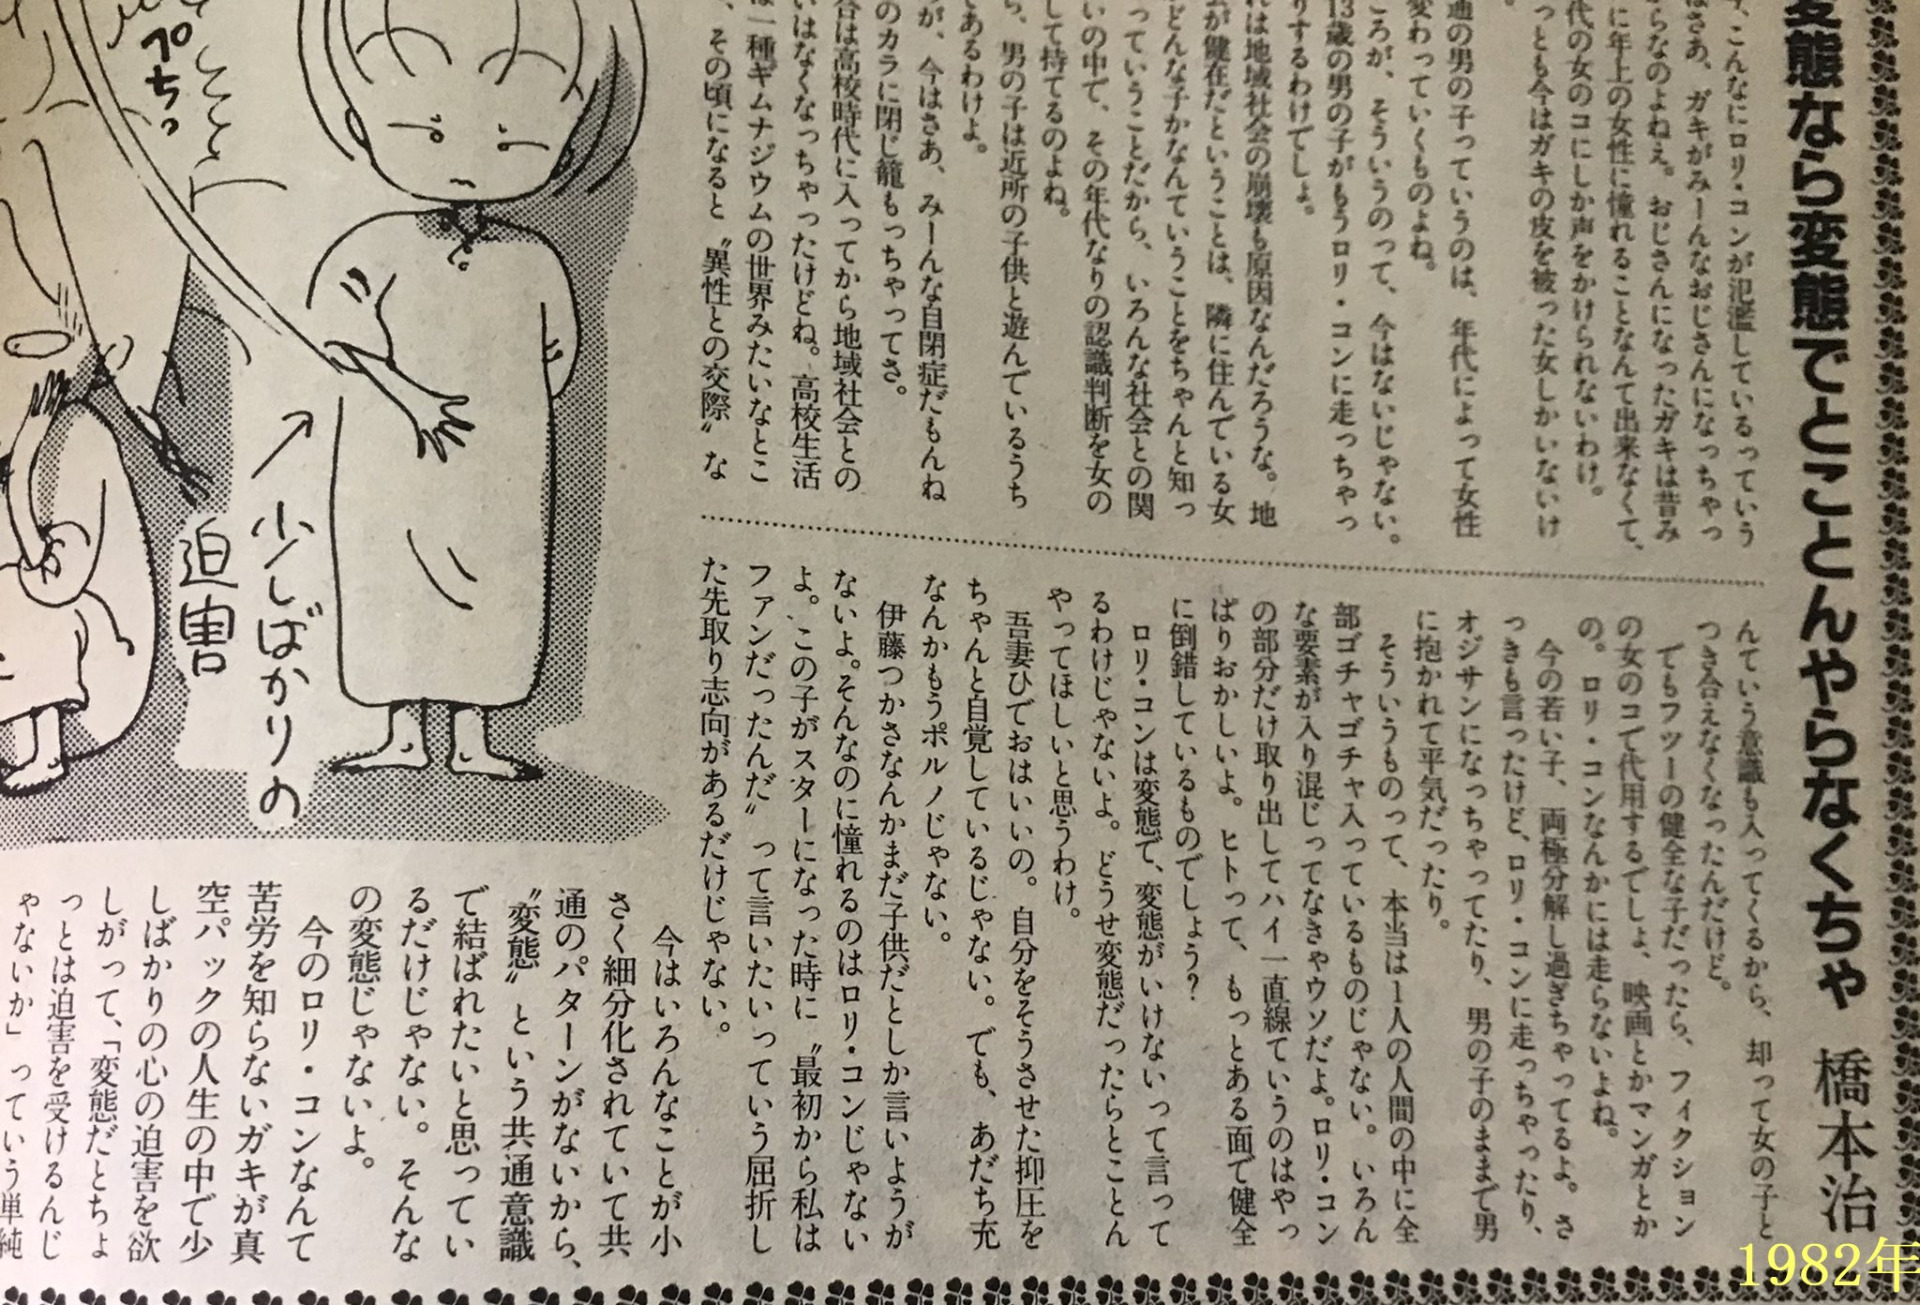 変態なら変態でとことんやらなくちゃ 橋本治
、こんなにロリ・コンが氾濫しているっていう
はさあ、ガキがみーんなおじさんになっちゃっ
からなのよねぇ。おじさんになったガキは昔み
に年上の女性に憧れることなんて出来なくて、
代の女のコにしか声をかけられないわけ。
っとも今はガキの皮を被った女しかいないけ
通の男の子っていうのは、年代によって女性
変わっていくものよね。
ころが、そういうのって、今はないじゃない。
13歳の男の子がもうロリ・コンに走っちゃっ
りするわけでしょ。
れは地域社会の崩壊も原因なんだろうな。地
が健在だということは、隣に住んでいる女
どんな子かなんていうことをちゃんと知っ
っていうことだから、いろんな社会との関
いの中で、その年代なりの認識判断を女の
して持てるのよね。
ら、男の子は近所の子供と遊んでいるうち
であるわけよ。
が、今はさあ、みーんな自閉症だもんね
のカラに閉じ籠もっちゃってさ。
合は高校時代に入ってから地域社会との
いはなくなっちゃったけどね。高校生活
は一種ギムナジウムの世界みたいなとこ
、その頃になると〝異性との交際〟な
んていう意識も入ってくるから、却って女の子と
つき合えなくなったんだけど。
でもフツーの健全な子だったら、フィクション
の女のコで代用するでしょ、映画とかマンガとか
の。ロリ・コンなんかには走らないよね。
今の若い子、両極分解し過ぎちゃってるよ。さ
っきも言ったけど、ロリ・コンに走っちゃったり、
オジサンになっちゃってたり、男の子のままで男
に抱かれて平気だったり。
そういうものって、本当は1人の人間の中に全
部ゴチャゴチャ入っているものじゃない。いろん
な要素が入り混じってなきゃウソだよ。ロリ・コン
の部分だけ取り出してハイ一直線ていうのはやっ
ぱりおかしいよ。ヒトって、もっとある面で健全
に倒錯しているものでしょう？
ロリ・コンは変態で、変態がいけないって言って
るわけじゃないよ。どうせ変態だったらとことん
やってほしいと思うわけ。
吾妻ひでおはいいの。自分をそうさせた抑圧を
ちゃんと自覚しているじゃない。でも、あだち充
なんかもうポルノじゃない。
伊藤つかさなんかまだ子供だとしか言いようが
ないよ。そんなのに憧れるのはロリ・コンじゃない
よ。この子がスターになった時に〝最初から私は
ファンだったんだ〟って言いたいっていう屈折し
た先取り志向があるだけじゃない。
今はいろんなことが小
さく細分化されていて共
通のパターンがないから、
〝変態〟という共通意識
で結ばれたいと思ってい
るだけじゃない。そんな
の変態じゃないよ。
今のロリ・コンなんて
苦労を知らないガキが真
空パックの人生の中で少
しばかりの心の迫害を欲
しがって、「変態だとちょ
っとは迫害を受けるんじ
ゃないか」っていう単純
少しばかりの
迫害
1982年